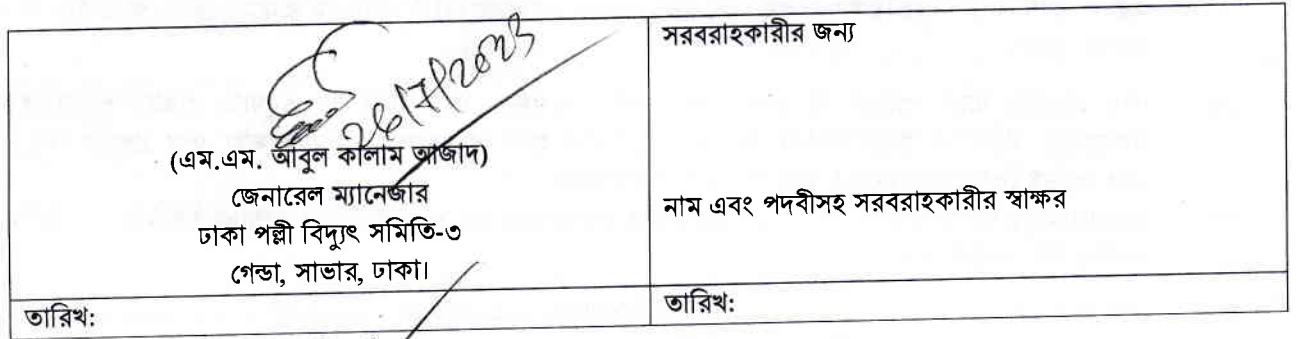 ২৬/৭/২০২৩
(এম.এম. আবুল কালাম আজাদ)
জেনারেল ম্যানেজার
ঢাকা পল্লী বিদ্যুৎ সমিতি-৩
গেন্ডা, সাভার, ঢাকা।
তারিখ:
সরবরাহকারীর জন্য
নাম এবং পদবীসহ সরবরাহকারীর স্বাক্ষর
তারিখ: